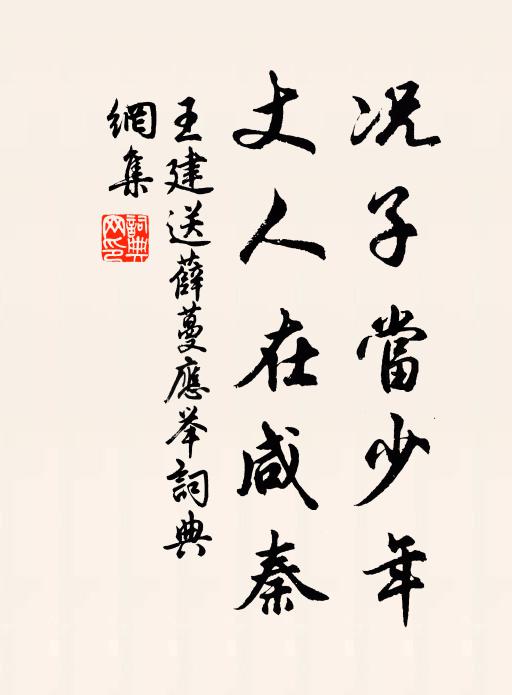 况子當少年
丈人在咸秦
王建送薛蔓應举詞典
網集
詞典網印